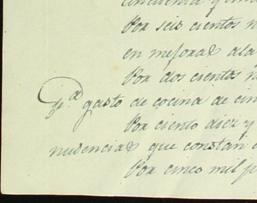 cincuenta y
Por seis cientos
en mejoras a la
Por dos cientos
gasto de cocina de cin
Por ciento diez y
nudencias que constan
Por cinco mil p